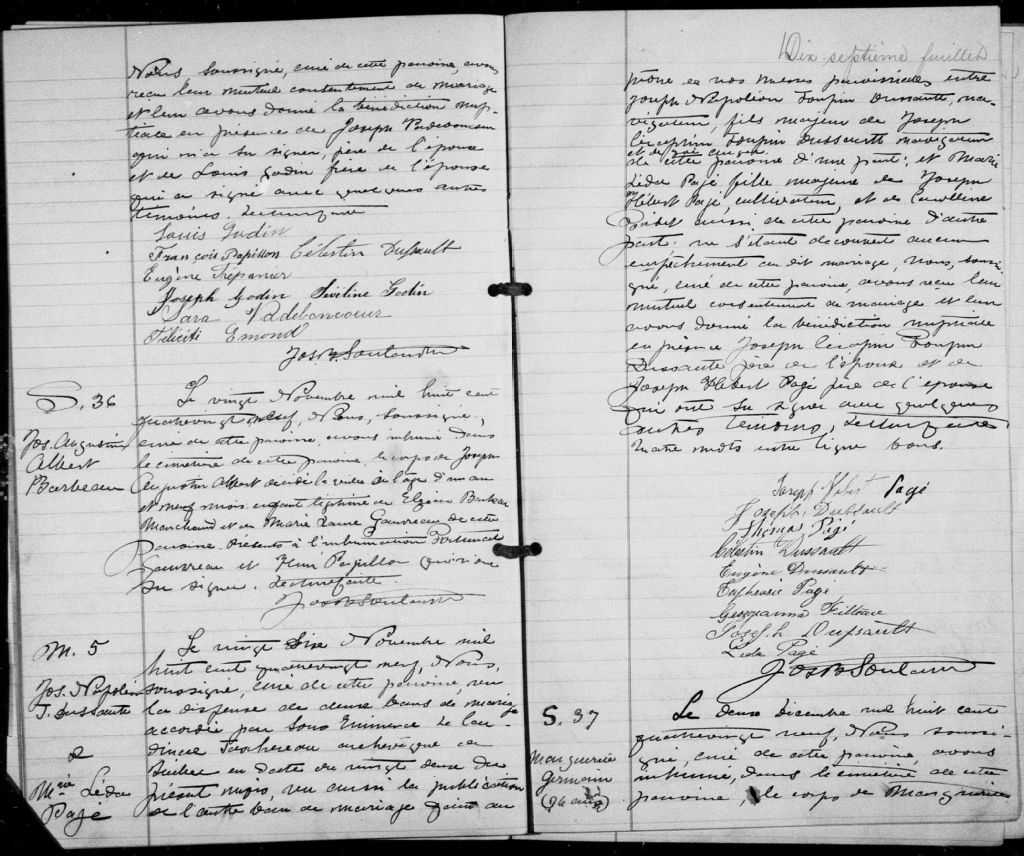 Nous, soussigné, curé de cette paroisse, avons
reçu leur mutuel consentement de mariage
et leur avons donné la bénédiction nup-
tiale en présence de Joseph
qui n'a su signer, père de l'épouse
et de Louis Godin frère de l'épouse
qui a signé avec quelques autres
témoins. Lecture faite
Louis Godin
François Papillon Célestin Dussault
Eugène Trépanier
Joseph Godin Evéline Godin
Sara Vadeboncoeur
Félicité Emond
Jos
S. 36
Jos. Augustin
Albert
Barbeau
Le vingt Novembre mil huit cent
quatrevingt neuf, Nous, soussigné,
curé de cette paroisse, avons inhumé dans
le cimetière de cette paroisse, le corps de Joseph
Augustin Albert décédé la veille à l'âge d'un an
et neuf mois, enfant légitime de Elzéar Barbeau
Marchand et de Marie Gauvreau de cette
paroisse. Présents à l'inhumation
Gauvreau et Henri Papillon qui
su signer. Lecture faite.
Jos
M. 5
Jos. Napoléon
T. Dussault
&
Mrie Léda
Pajé
Le vingt Sixe Novembre mil
huit cent quatrevingt neuf, Nous,
soussigné, curé de cette paroisse, vu
la dispense de deux bans de mariage
accordée par Sons Eminence le Car
dinal Taschereau archevêque de
Québec en date du vingt deux du
présent mois, vu aussi la publication
de l'autre ban de mariage faite au
Dix septième feuillet
prône de nos messes paroissiales entre
Joseph Napoléon Toupin Dussault, na-
vigateur, fils majeur de Joseph
Toupin Dussault navigateur
et de
de cette paroisse d'une part; et Marie
Léda Pajé fille majeure de Joseph
Hebert Pajé, cultivateur, et de Caroline
aussi de cette paroisse d'autre
part: ne s'étant découvert aucun
empêchement au dit mariage, Nous, sous-
signé, curé de cette paroisse, avons reçu leur
mutuel consentement de mariage et leur
avons donné la bénédiction nuptiale
en présence Joseph Toupin
Dussault père de l'époux et de
Joseph Hebert Pagé père de l'épouse
qui ont su signer avec quelques
autres témoins, Lecture faite
quatre mots entre ligne bons.
Joseph Pagé
Joseph Dussault
Pagé
Célestin Dussault
Eugène Dussault
Euphrasie Pagé
Georgianna Filteau
Joseph Dussault
Léda Pagé
Jos
S. 37
Marguerite
Germain
Le deux Décembre mil huit cent
quatrevingt neuf, Nous soussi-
gné, curé de cette paroisse, avons
inhumé, dans le cimetière de cette
paroisse, le corps de Marguerite